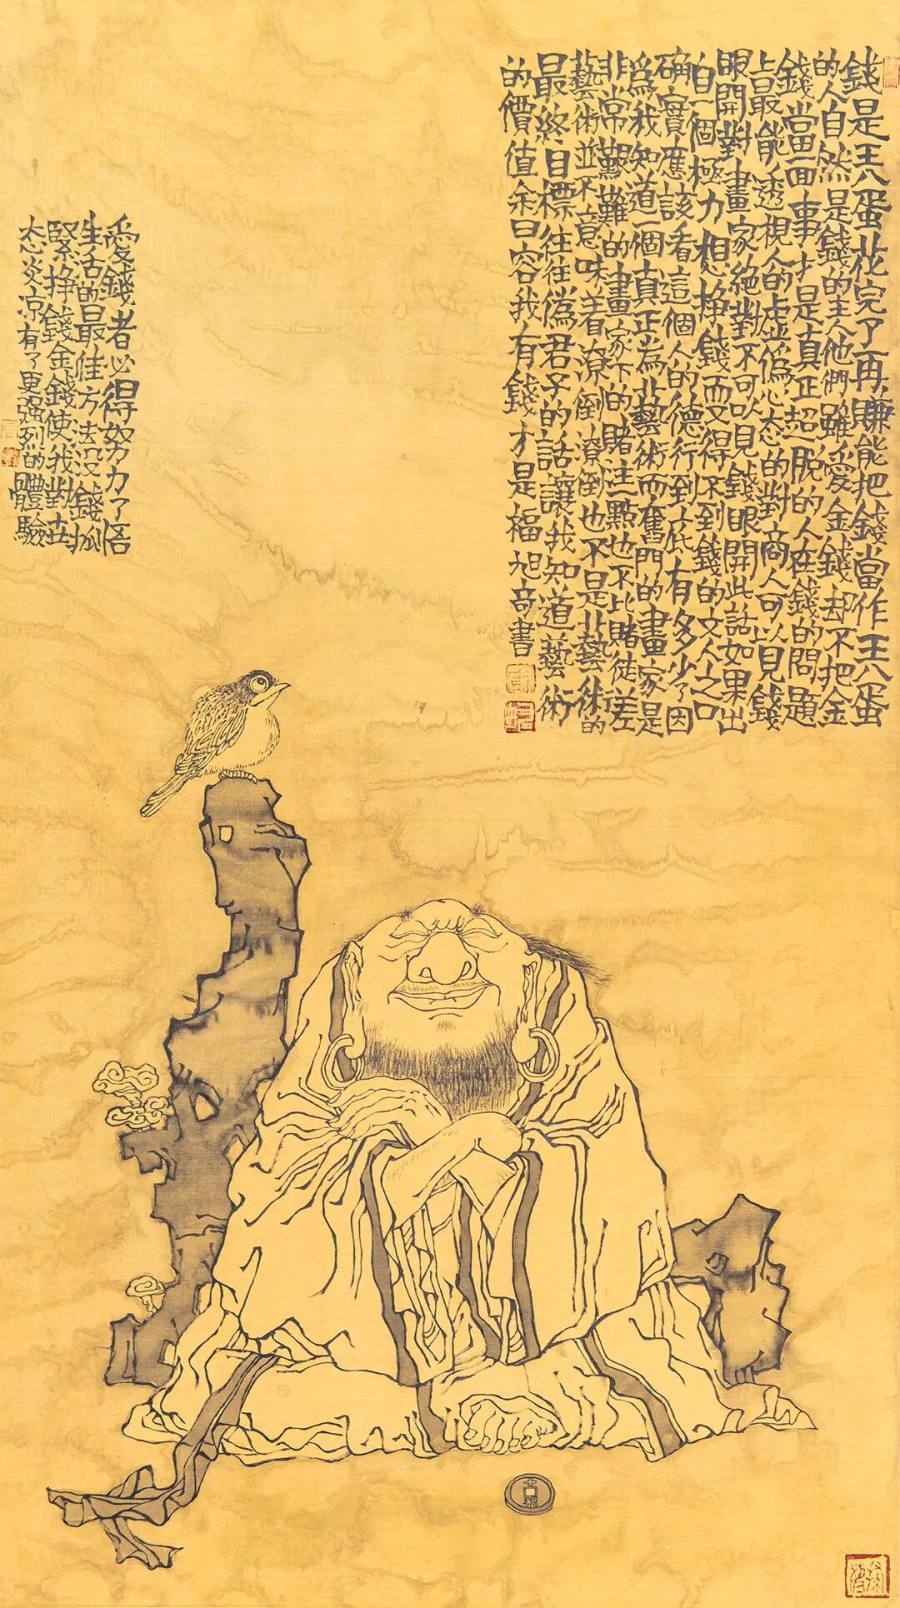 錢是王八蛋花完了再賺能把錢當作王八蛋
的人自然是錢的主人他們雖愛金錢却不把金
錢當一回事才是真正超脱的人在錢的問題
上最能透視人的虛偽心态的對商人可以見錢
眼開對畫家絕對不可以見錢眼開此話如果出
自一個極力想掙錢而又得不到錢的文人之口
确實應該看這個人的德行到底有多少了因
爲我知道一個真正為藝術而奮鬥的畫家是
非常艱難的畫家下的賭注一點也不比賭徒差
藝術並不意味着潦倒潦倒也不是藝術的
最終目標往往偽君子的話讓我知道藝術
的價值余曰容我有錢才是福旭奇書
愛錢者必得努力了悟
生活的最佳方法没錢抓
緊掙錢金錢使我對世
态炎凉有了更强烈的體驗